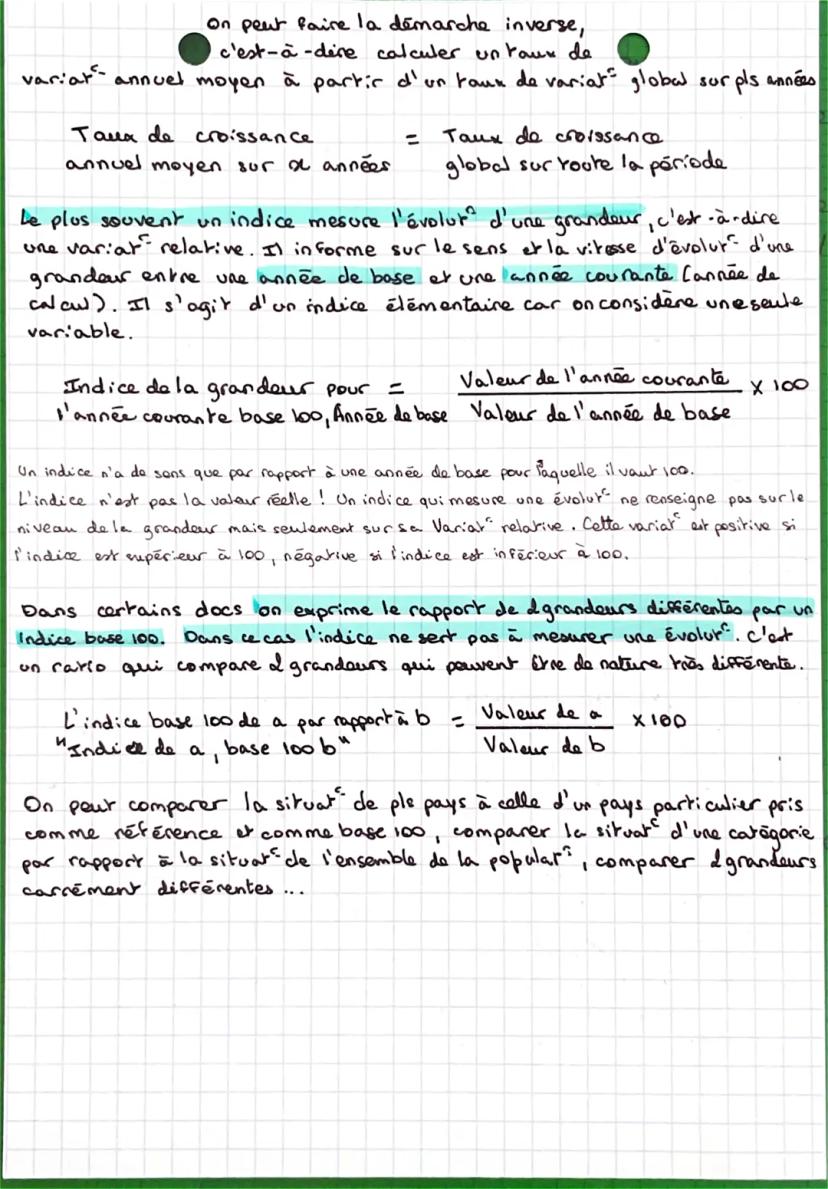 On peut faire la démarche inverse,
c'est-à-dire calculer un taux de
variat° annuel moyen à partir d'un taux de variat° global sur pls années
Taux de croissance = Taux de croissance
annuel moyen sur x années global sur toute la période
Le plus souvent un indice mesure l'évolut° d'une grandeur, c'est-à-dire
une variat° relative. Il informe sur le sens et la vitesse d'évolut° d'une
grandeur entre une année de base et une année courante (année de
calcul). Il s'agit d'un indice élémentaire car on considère une seule
variable.
Indice de la grandeur pour = Valeur de l'année courante x 100
l'année courante base 100, Année de base Valeur de l'année de base
Un indice n'a de sens que par rapport à une année de base pour laquelle il vaut 100.
L'indice n'est pas la valeur réelle ! Un indice qui mesure une évolut° ne renseigne pas sur le
niveau de la grandeur mais seulement sur sa Variat° relative. Cette variat° est positive si
l'indice est supérieur à 100, négative si l'indice est inférieur à 100.
Dans certains docs on exprime le rapport de 2 grandeurs différentes par un
indice base 100. Dans ce cas l'indice ne sert pas à mesurer une évolut°. C'est
un ratio qui compare 2 grandeurs qui peuvent être de nature très différente.
L'indice base 100 de a par rapport à b = Valeur de a x 100
"Indice de a, base 100 b" Valeur de b
On peut comparer la situat° de pls pays à celle d'un pays particulier pris
comme référence et comme base 100, comparer la situat° d'une catégorie
par rapport à la situat° de l'ensemble de la populat°, comparer 2 grandeurs
carrément différentes ...